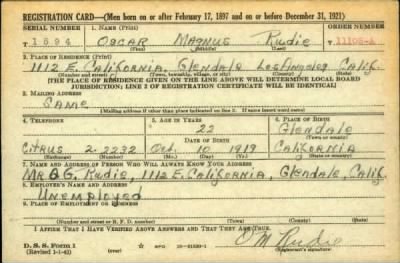 REGISTRATION CARD—(Men born on or after February 17, 1897 and on or before December 31, 1921)
SERIAL NUMBER 1. NAME (Print) ORDER NUMBER
T 1594 OSCAR MAGNUS Rudie 11108-A
(First) (Middle) (Last)
2. PLACE OF RESIDENCE (Print)
1112 E. California, Glendale Los Angeles Calif.
(Number and street) (Town, township, village, or city) (County) (State)
[THE PLACE OF RESIDENCE GIVEN ON THE LINE ABOVE WILL DETERMINE LOCAL BOARD
JURISDICTION; LINE 2 OF REGISTRATION CERTIFICATE WILL BE IDENTICAL]
3. MAILING ADDRESS
SAME
[Mailing address if other than place indicated on line 2. If same insert word same]
4. TELEPHONE 5. AGE IN YEARS 6. PLACE OF BIRTH
22 Glendale
DATE OF BIRTH (Town or county)
Citrus 2-2232 Oct. 10 1919 California
(Exchange) (Number) (Mo.) (Day) (Yr.) (State or country)
7. NAME AND ADDRESS OF PERSON WHO WILL ALWAYS KNOW YOUR ADDRESS
Mr. G. Rudie, 1112 E. California, Glendale, Calif.
8. EMPLOYER'S NAME AND ADDRESS
Unemployed
9. PLACE OF EMPLOYMENT OR BUSINESS
(Number and street or R. F. D. number) (Town) (County) (State)
I AFFIRM THAT I HAVE VERIFIED ABOVE ANSWERS AND THAT THEY ARE TRUE.
D. S. S. Form 1 O M Rudie
(Revised 1-1-42) (Registrant's signature)